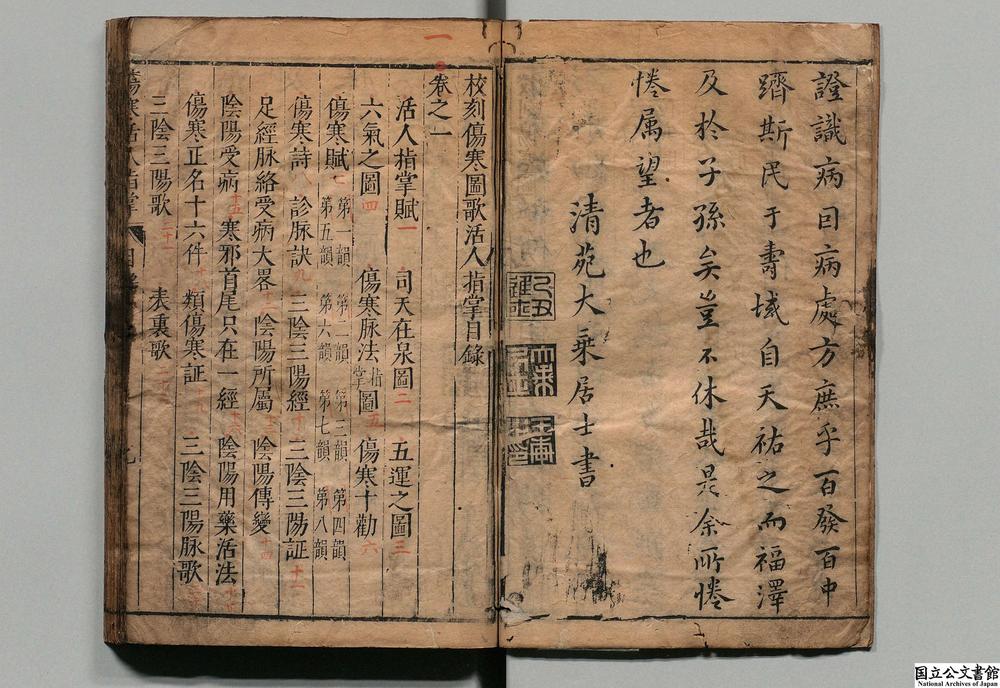 證識病因病處方庶乎百發百中
躋斯民于壽域自天祐之而福澤
及於子孫矣豈不休哉是余所惓
惓属望者也
清苑大乘居士書
校刻傷寒圖歌活人指掌目錄
卷之一
一
活人指掌賦 一 司天在泉圖 二 五運之圖 三
六氣之圖 四 傷寒脉法指掌圖 五 傷寒十勸 六
傷寒賦 七 第一韻 第二韻 第三韻 第四韻
第五韻 第六韻 第七韻 第八韻
傷寒詩 八 診脉訣 九 三陰三陽經 十 三陰三陽証 十一
足經脉絡受病大畧 陰陽所屬 陰陽傳變 十四
陰陽受病 十五 寒邪首尾只在一經 十六 陰陽用藥活法
傷寒正名十六件 類傷寒証 十九 三陰三陽脉歌
三陰三陽歌 二十一 表裏歌
傷寒活人指掌 目錄
国立公文書館
National Archives of Japan